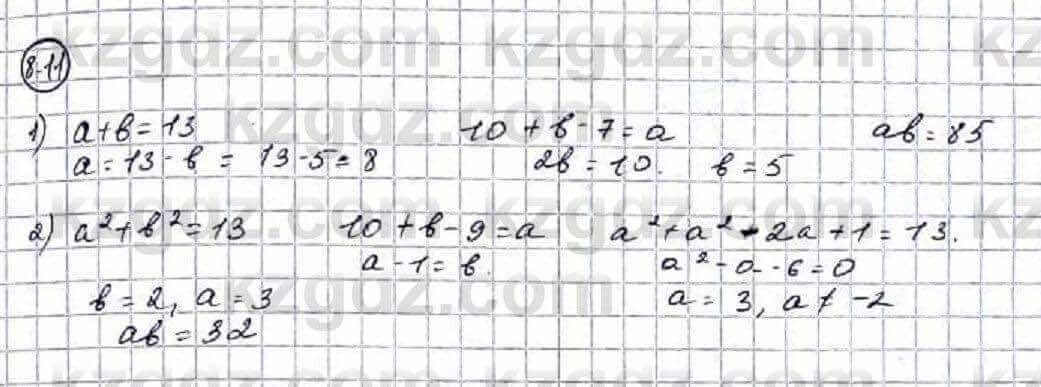 8.11
1) a+b=13 10+b-7=a ab=85
a=13-b = 13-5=8 2b=10. b=5
2) a²+b²=13 10+b-9=a a²+a²-2a+1=13.
a-1=b. a²-a-6=0
b=2, a=3 a=3, a≠-2
ab=32
kzgdz.com